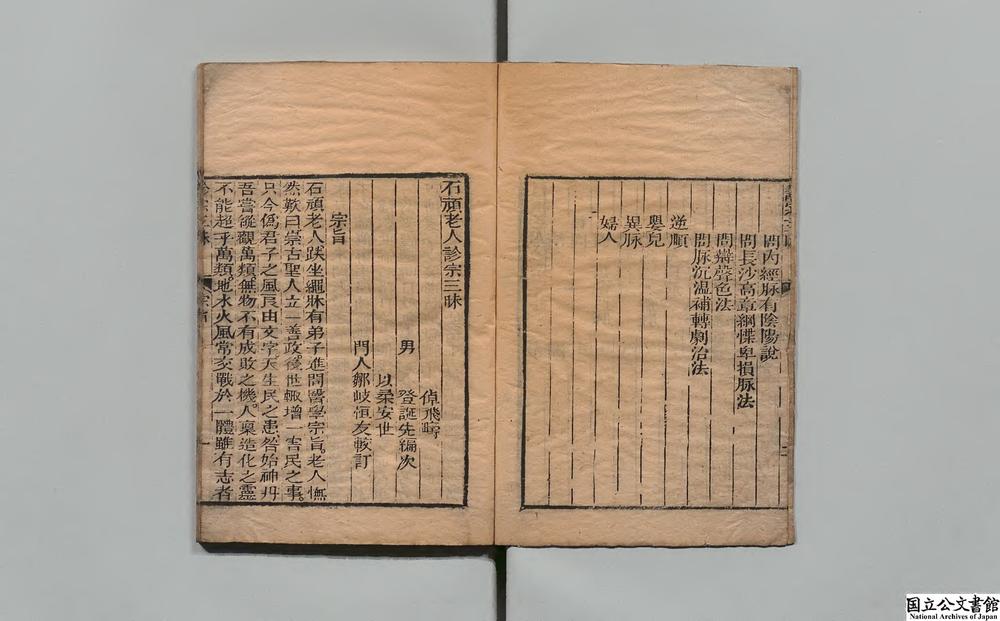 問內經脉有陰陽說
問長沙高章綱惵卑損脉法
問辯聲色法
問脉沉溫補轉劇治法
逆順
嬰兒
異脉
婦人
石頑老人診宗三昧
倬飛疇
男 登誕先編次
以柔安世
門人鄒岐恒友較訂
宗旨
石頑老人趺坐繩牀有弟子進問醫學宗旨。老人憮
然歎曰崇古聖人立一善政。後世輒增一害民之事。
只今僞君子之風良由文字。天生民之患咎始神丹
吾嘗縱觀萬類。無物不有成敗之機。人稟造化之靈
不能超乎萬類。地水火風常交戰於一體雖有志者
診宗三昧 宗旨 一
国立公文書館
National Archives of Japan